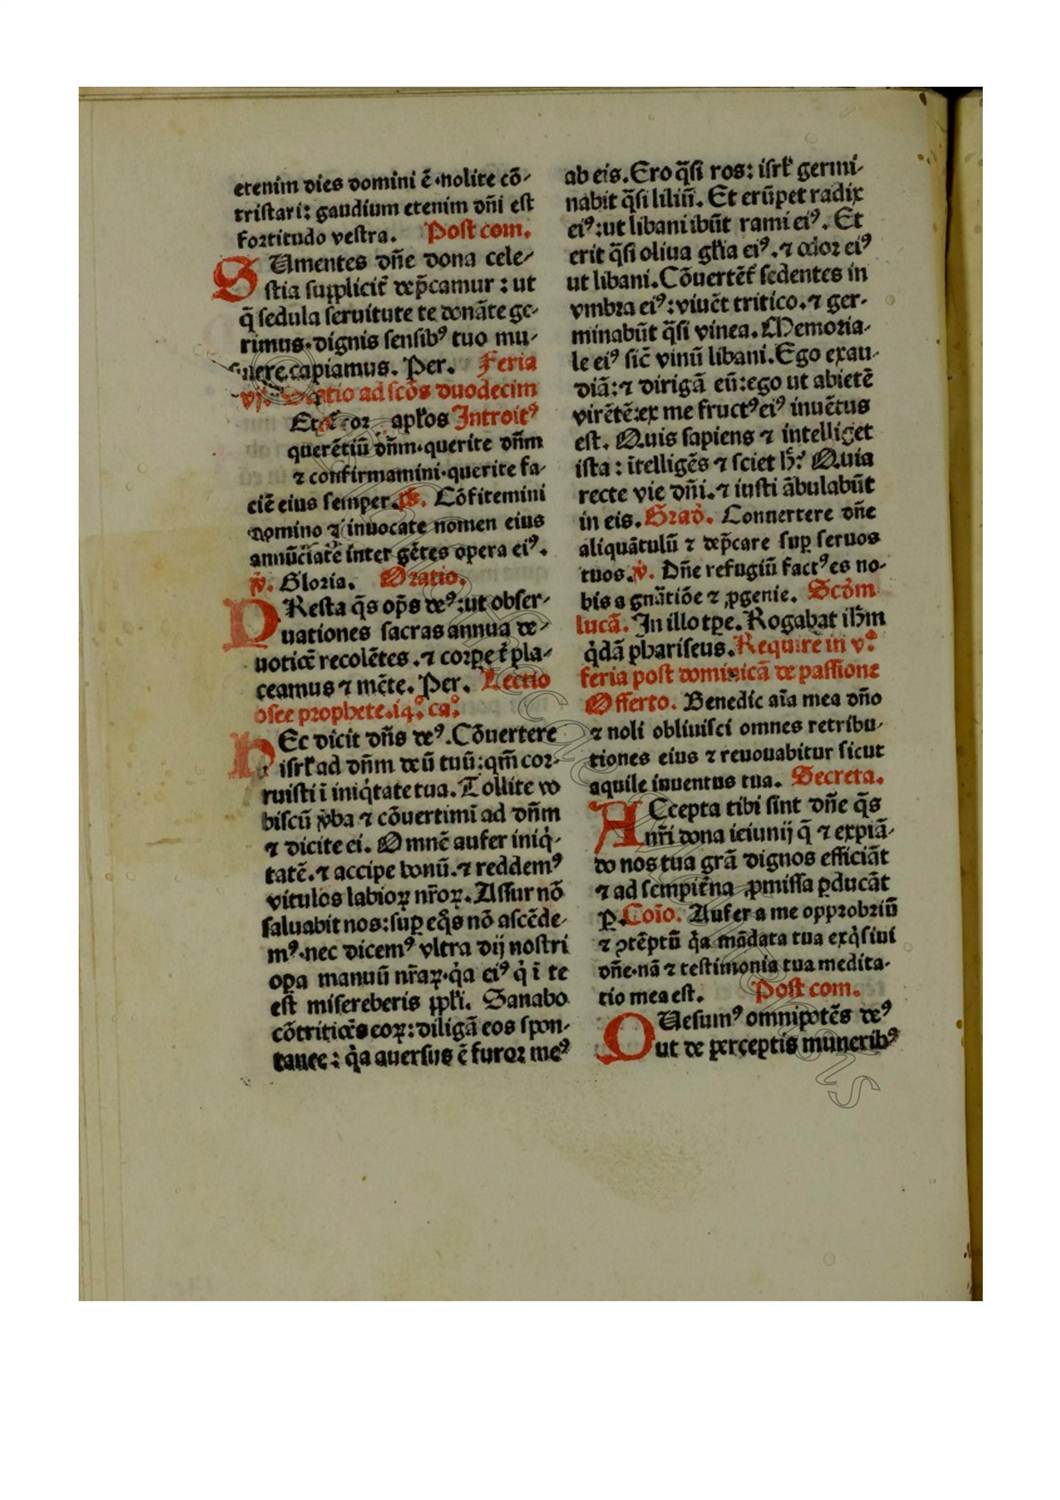 etenim dies domini ē·nolite cō-
tristari: gaudium etenim dn̄i est
fortitudo vestra. Post com.
SUmentes dn̄e dona cele-
stia supplicit̄ dep̄camur : ut
q̄ sedula seruitute te donāte ge-
rimus·dignis sensibꝰ tuo mu-
capiamus. Per. Feria
vj. ad scōs duodecim
apl'os Introitꝰ
querētiū dn̄m·querite dn̄m
⁊ confirmamini·querite fa-
ciē eius semper. ps. Cōfitemini
domino ⁊ inuocate nomen eius
annūciate inter gētes opera eiꝰ.
v̄. Gloria. Oratio.
PResta q̄s op̄s deꝰ:ut obser-
uationes sacras annua de-
uotiōe recolētes.⁊ corꝑe t̄ pla-
ceamus ⁊ mēte. Per. Lectio
osee prophete.i4.° ca.°
HEc dicit dn̄s deꝰ.Cōuertere
isrl' ad dn̄m deū tuū:qm̄ cor-
ruisti ī iniq̇tate tua. Tollite vo
biscū v̄ba ⁊ cōuertimi ad dn̄m
⁊ dicite ei. Omnē aufer iniq̇-
tatē.⁊ accipe bonū.⁊ reddemꝰ
vitulos labioꝝ nr̄oꝝ. Assur nō
saluabit nos:suꝑ eq̄s nō ascēde-
mꝰ·nec dicemꝰ vltra dij nostri
oꝑa manuū nr̄aꝝ·q̇a eiꝰ q̇ ī te
est misereberis ppl'i. Sanabo
cōtritiōes eoꝝ:diligā eos spon-
tanee: q̇a auersus ē furor meꝰ
ab eis. Ero q̄si ros: isrl' germi-
nabit q̄si liliū. Et erūpet radix
eiꝰ:ut libani ibūt rami eiꝰ. Et
erit q̄si oliua gl'ia eiꝰ.⁊ odor eiꝰ
ut libani. Cōuertēt̄ sedentes in
vmbra eiꝰ: viuēt tritico.⁊ ger-
minabūt q̄si vinea. Memoria-
le eiꝰ sic̄ vinū libani. Ego exau-
diā:⁊ dirigā eū:ego ut abietē
virētē:ex me fructꝰ eiꝰ inuētus
est. Quis sapiens ⁊ intelliget
ista : ītelligēs ⁊ sciet h̄? Quia
recte vie dn̄i.⁊ iusti ābulabūt
in eis. Grad̄. Connertere dn̄e
aliquātulū ⁊ dep̄care suꝑ seruos
tuos. v̄. Dn̄e refugiū factꝰ es no-
bis a gn̄atiōe ⁊ ꝓgenie. Scd̄m
lucā. In illo tꝑe. Rogabat ih̄m
q̇dā phariseus. Require in v.ª
feria post dominicā de passione
Offerto. Benedic aīa mea dn̄o
⁊ noli obliuisci omnes retribu-
tiones eius ⁊ reuouabitur sicut
aquile inuentus tua. Secreta.
ACcepta tibi sint dn̄e q̄s
nr̄i dona ieiunij q̄ ⁊ expiā-
do nos tua grā dignos efficiāt
⁊ ad sempit̄na ꝓmissa ꝑducāt
ꝑ. Coīo. Aufer a me opprobriū
⁊ ꝯtēptū q̇a mādata tua exq̇siui
dn̄e·nā ⁊ testimonia tua medita-
tio mea est. Post com.
QUesumꝰ omnipotēs deꝰ
ut de perceptis muneribꝰ